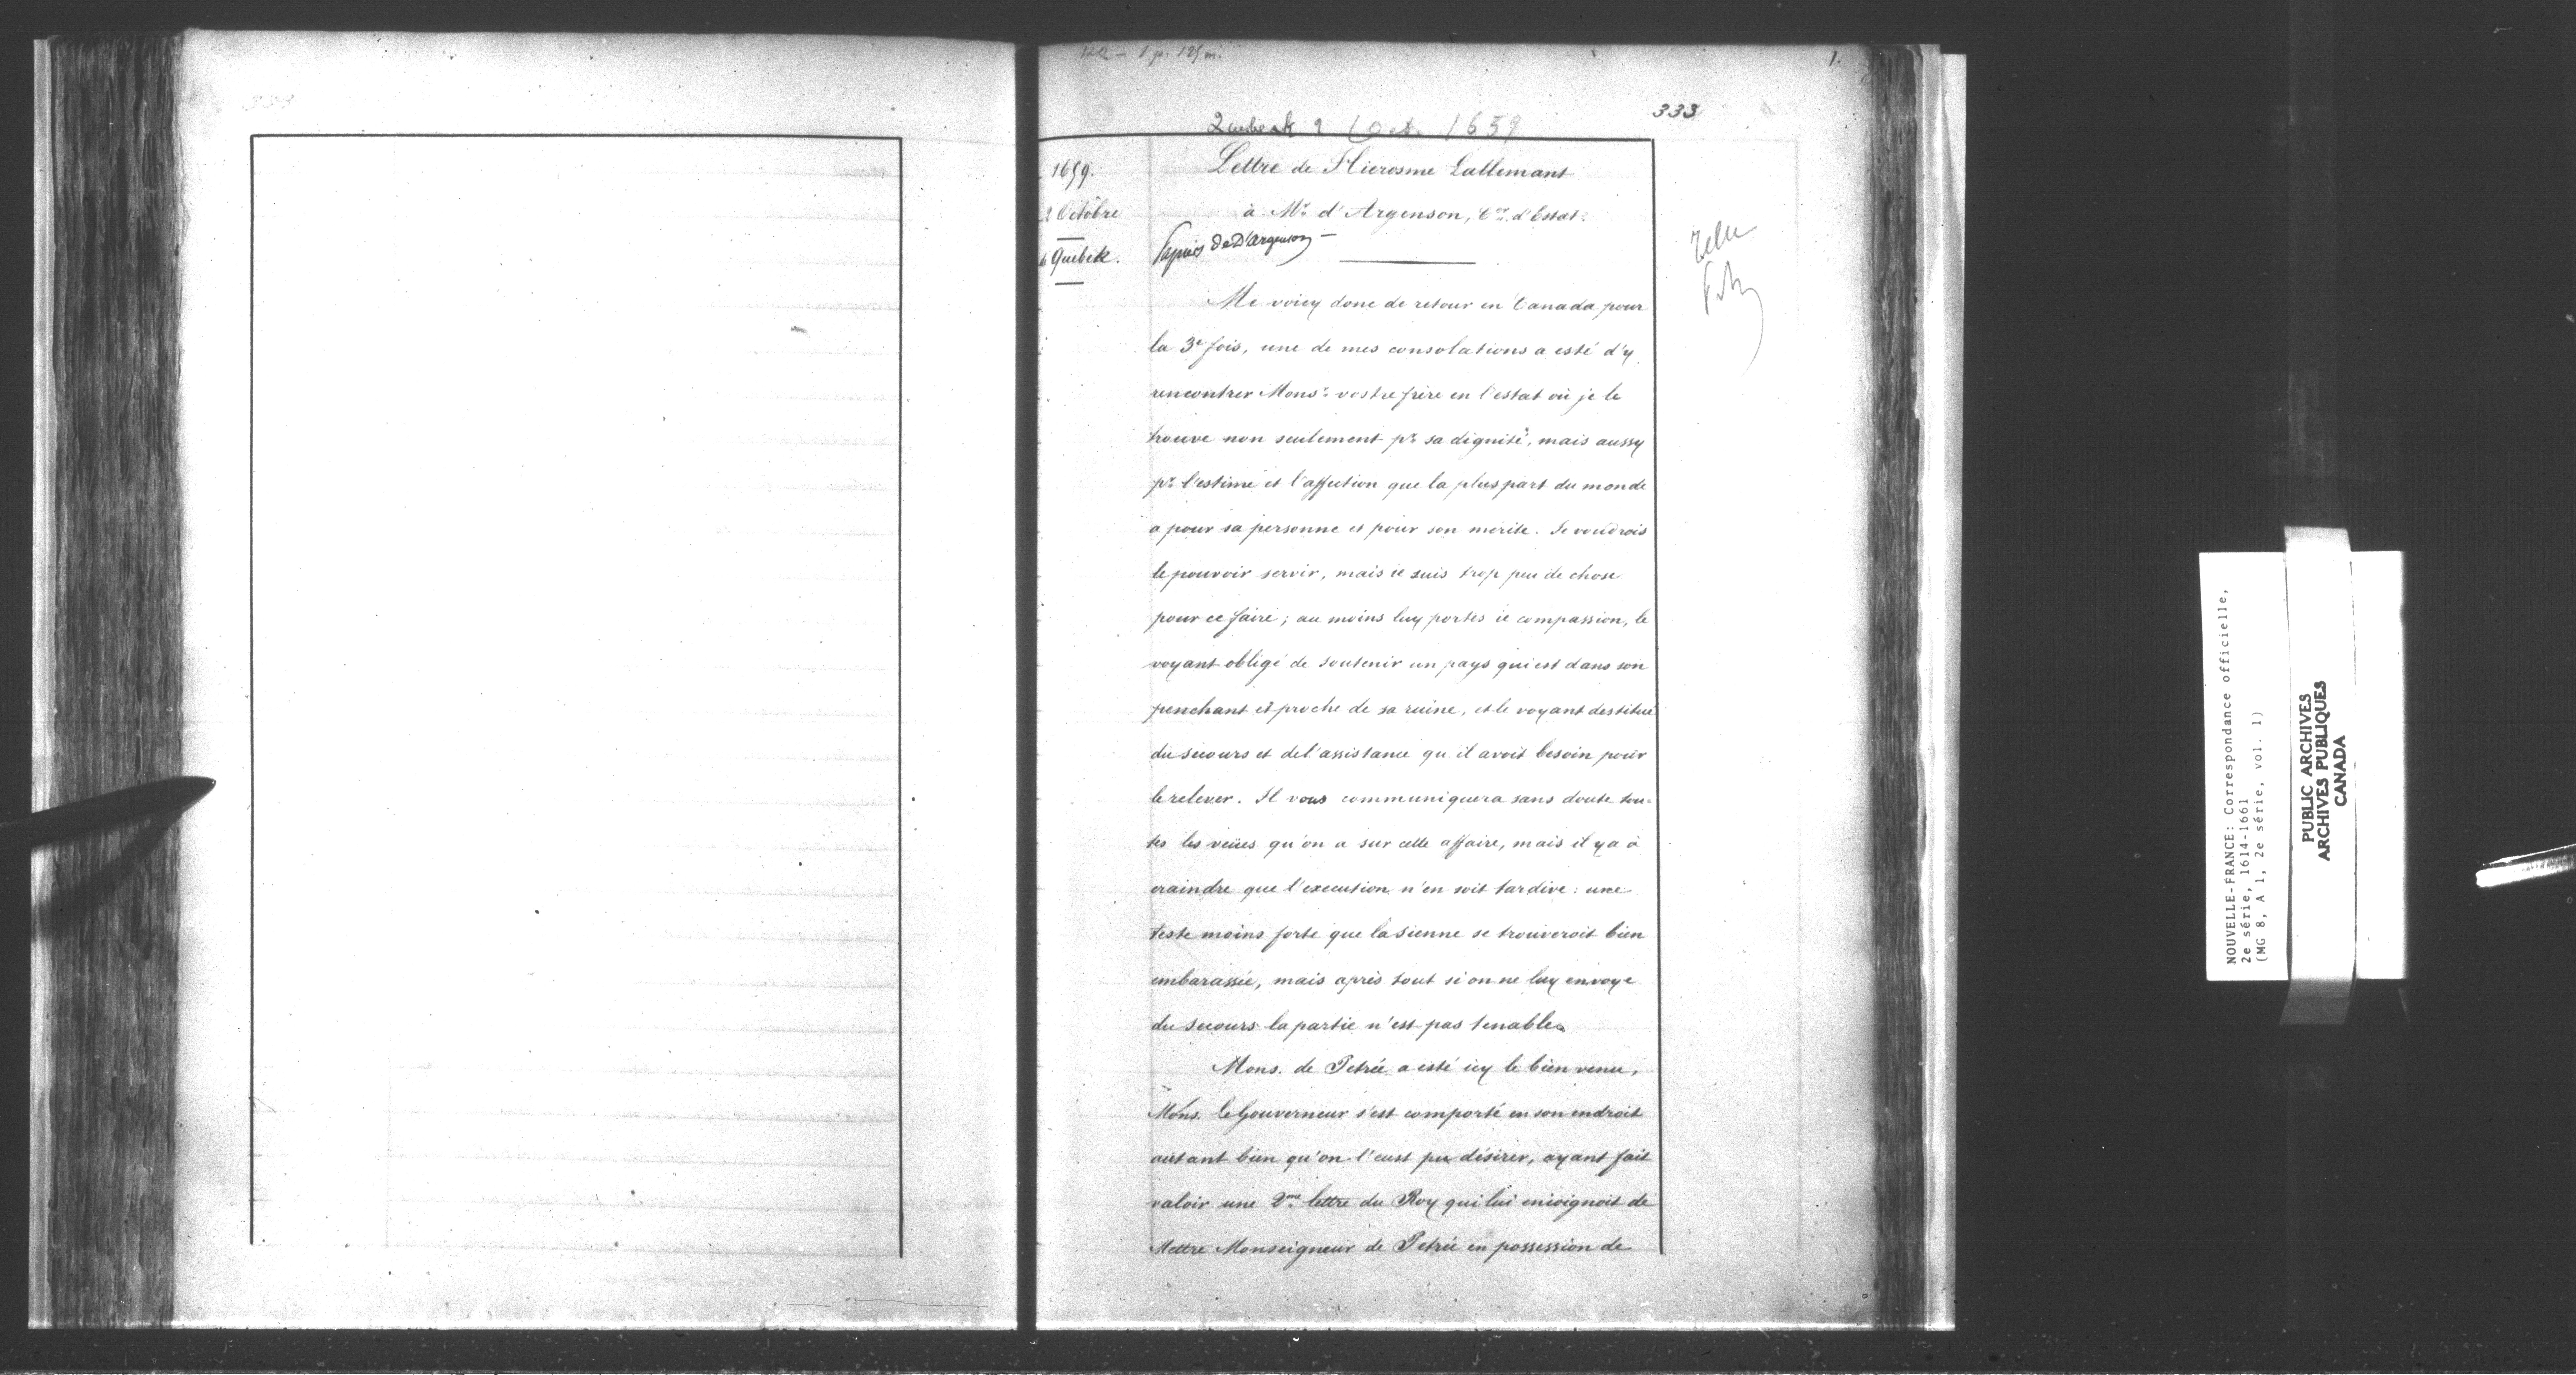 1.
333
Quebeck 9 Oct. 1659
1659.
Octobre
Quebek.
Lettre de Hierosme Lallemant
à Mr. d'Argenson, Cer. d'Estat.
Papiers de D'Argenson —
Me voicy donc de retour en Canada pour
la 3e fois, une de mes consolations a esté d'y
rencontrer Monsr. vostre frère en l'estat où je le
trouve non seulement pr. sa dignité, mais aussy
pr. l'estime et l'affection que la pluspart du monde
a pour sa personne et pour son mérite. Je voudrois
le pouvoir servir, mais ie suis trop peu de chose
pour ce faire; au moins luy portes ie compassion, le
voyant obligé de soutenir un pays qui est dans son
penchant et proche de sa ruine, et le voyant destitué
du secours et de l'assistance qu'il avoit besoin pour
le relever. Il vous communiquera sans doute tou-
tes les veües qu'on a sur cette affaire, mais il y a à
craindre que l'execution n'en soit tardive: une
teste moins forte que la sienne se trouveroit bien
embarassée, mais après tout si on ne luy envoye
du secours la partie n'est pas tenable.
Mons. de Petrée a esté icy le bien venu,
Mons. le Gouverneur s'est comporté en son endroit
autant bien qu'on l'eust pu désirer, ayant fait
valoir une 2me. lettre du Roy qui lui enioignoit de
Mettre Monseigneur de Petrée en possession de
NOUVELLE-FRANCE: Correspondance officielle,
2e série, 1614-1661
(MG 8, A 1, 2e série, vol. 1)
PUBLIC ARCHIVES
ARCHIVES PUBLIQUES
CANADA